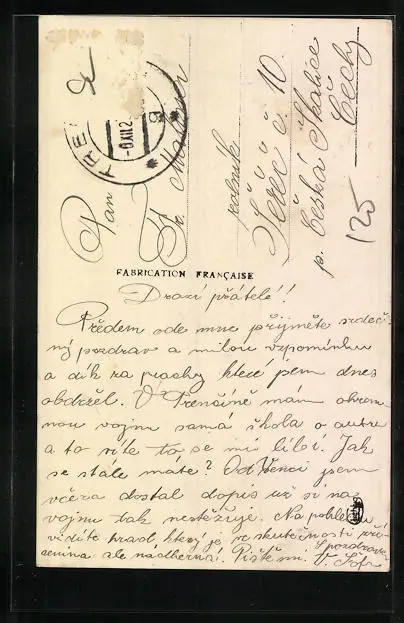 TREN
-6.XII.2
9
Pan
Fr.
rolník
Šeřeč č. 10
p. Česká Skalice
Čechy
125
FABRICATION FRANÇAISE
Drazí přátelé!
Předem ode mne přijměte srdeč-
ný pozdrav a milou vzpomínku
a dík za prachy které jsem dnes
obdržel. V Trenčíně mám ohrom-
nou vojnu samá škola o autu
a to víte to se mi líbí. Jak
se stále máte? Od jsem
včera dostal dopis už si na
vojnu tak nestěžuje. Na pohledu
vidíte hrad který je ve skutečnosti
ale nádherný. Pište mi. S pozdravem
V.